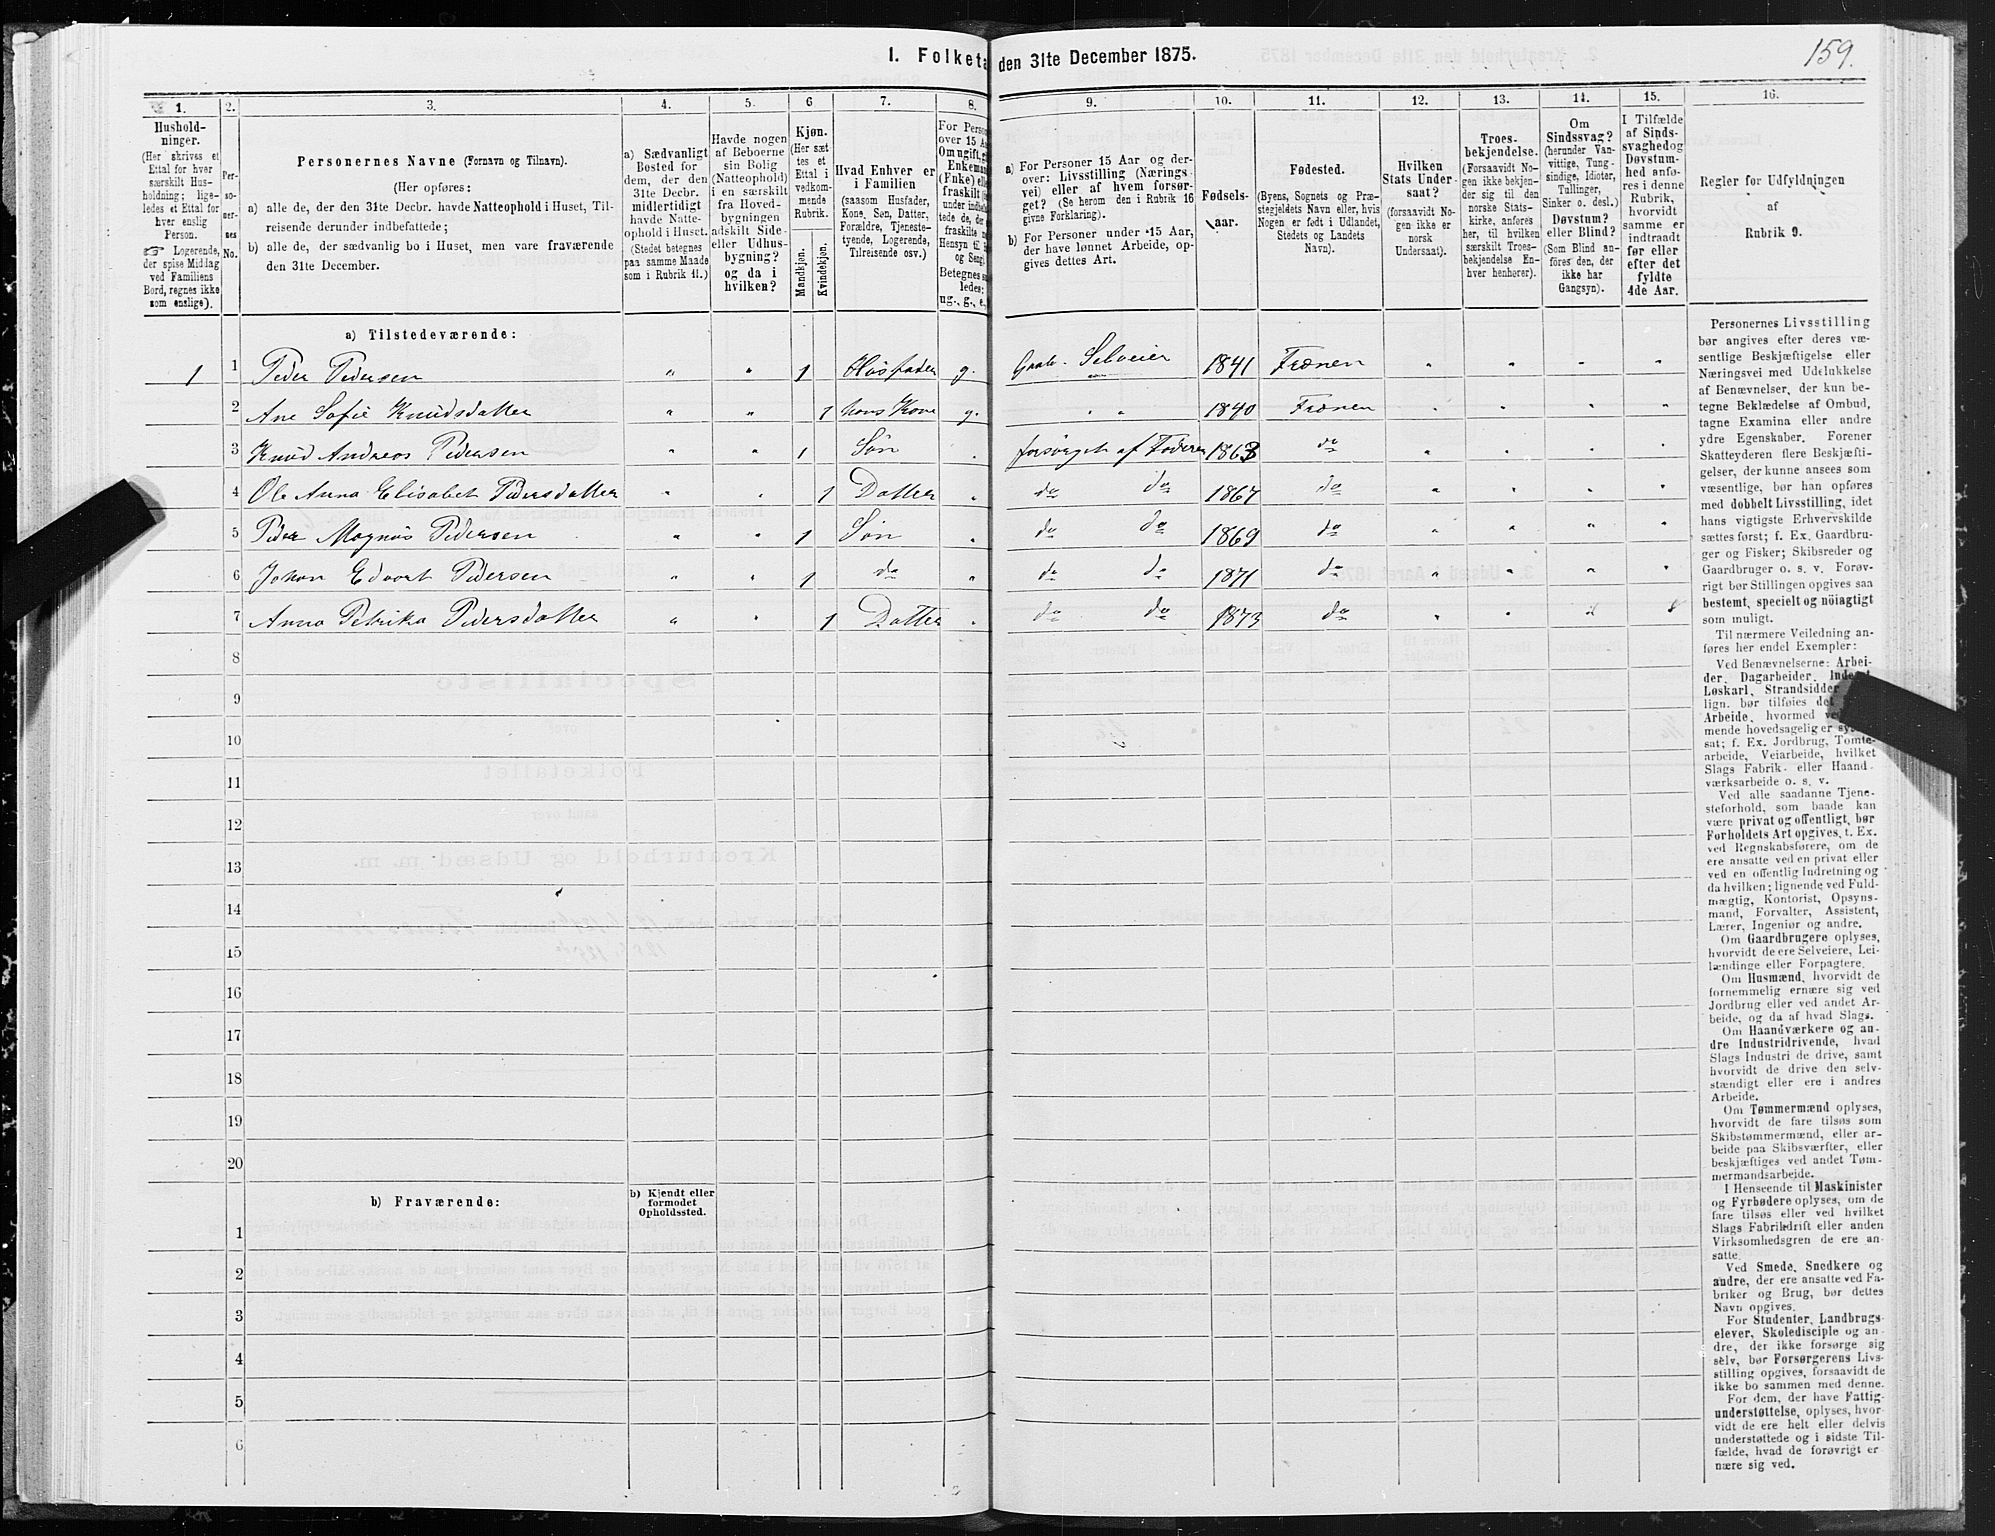 159.
1. Folketa den 31te December 1875.
1. 2. 3. 4. 5. 6 7. 8. 9. 10. 11. 12. 13. 14. 15. 16.
Hushold-
ninger.
(Her skrives et
Ettal for hver
særskilt Hus-
holdning; lige-
ledes et Ettal for
hver enslig
Person.
☞ Logerende,
der spise Middag
ved Familiens
Bord, regnes ikke
som enslige).
Per-
so-
ner-
nes
No.
Personernes Navne (Fornavn og Tilnavn).
(Her opføres:
a) alle de, der den 31te Decbr. havde Natteophold i Huset, Til-
reisende derunder indbefattede;
b) alle de, der sædvanlig bo i Huset, men vare fraværende
den 31te December.
a) Sædvanligt
Bosted for
dem, der den
31te Decbr.
midlertidigt
havde Natte-
ophold i Huset.
(Stedet betegnes
paa samme Maade
som i Rubrik 11.)
Havde nogen
af Beboerne
sin Bolig
(Natteophold)
i en særskilt
fra Hoved-
bygningen
adskilt Side-
eller Udhus-
bygning?
og da i
hvilken?
Kjøn.
(Her sæt
tes et
Ettal i
vedkom-
mende
Rubrik.
Mandkjøn.
Kvindekjøn.
Hvad Enhver er
i Familien
(saasom Husfader,
Kone, Søn, Datter,
Forældre, Tjeneste-
tyende, Logerende,
Tilreisende osv.)
For Person
over 15 Aa
Om ugift, gi
Enkeman
(Enke) elle
fraskilt
Betegnes s
ledes;
ug., g., e.,
a) For Personer 15 Aar og der-
over: Livsstilling (Nærings
vei) eller af hvem forsør-
get? (Se herom den i Rubrik 16
givne Forklaring).
b) For Personer under 15 Aar,
der have lønnet Arbeide, op-
gives dettes Art.
Fødsels-
aar.
Fødested.
(Byens, Sognets og Præ-
stegjeldets Navn eller, hvis
Nogen er født i Udlandet,
Stedets og Landets
Navn).
Hvilken
Stats Under-
saat?
(forsaavidt No-
gen ikke er
norsk
Undersaat).
Troes-
bekjendelse.
(Forsaavidt No-
gen ikke bekjen-
der sig til den
norske Stats-
kirke, anføres
her, til hvilken
særskilt Troes-
bekjendelse En-
hver henhører).
Om
Sindssvag?
(herunder Van-
vittige, Tung-
sindige, Idioter,
Tullinger,
Sinker o. desl.)
Døvstum?
eller Blind?
(Som Blind an-
føres den, der
ikke har
Gangsyn).
I Tilfælde
af Sinds-
svaghed og
Døvstum-
hed anfø-
res i denne
Rubrik,
hvorvidt
samme er
indtraadt
før eller
efter det
fyldte
4de Aar.
Regler for Udfyldningen
af
Rubrik 9.
a) Tilstedeværende:
1 1 Peder Pedersen " " 1 Husfader g. Gaab. Selveier 1841 Frænen " " " "
2 Ane Sofie Knudsdatter " " 1 hans Kone g. " " 1840 Frænen " " " "
3 Knud Andreas Pedersen " " 1 Søn " forsørget af Faderen 1863 do " " " "
4 Ole Anna Elisabet Pedersdatter " " 1 Datter " do do 1867 do " " " "
5 Peder Magnus Pedersen " " 1 Søn " do do 1869 do " " " "
6 Johan Edvart Pedersen " " 1 do " do do 1871 do " " " "
7 Anna Petrika Pedersdatter " " 1 Datter " do do 1873 do " " " "
8
9
10
11
12
13
14
15
16
17
18
19
20
b) Fraværende:
b) Kjendt eller
formodet
Opholdssted.
1
2
3
4
5
6
Personernes Livsstilling
bør angives efter deres væ-
sentlige Beskjæftigelse eller
Næringsvei med Udelukkelse
af Benævnelser, der kun be-
tegne Beklædelse af Ombud,
tagne Examina eller andre
ydre Egenskaber. Forener
Skatteyderen flere Beskjæfti-
gelser, der kunne ansees som
væsentlige, bør han opføres
med dobbelt Livsstilling, idet
hans vigtigste Erhvervskilde
sættes først; f. Ex. Gaardbru-
ger og Fisker; Skibsreder og
Gaardbruger o. s. v. Forøv-
rigt bør Stillingen opgives saa
bestemt, specielt og nöiagtigt
som muligt.
Til nærmere Veiledning an-
føres her endel Exempler:
Ved Benævnelserne: Arbei-
der, Dagarbeider, Inder
Løskarl, Strandsidder
lign. bør tilføies det
Arbeide, hvormed ve
mende hovedsagelig er sys
sat; f. Ex. Jordbrug, Tomte-
arbeide, Veiarbeide, hvilket
Slags Fabrik- eller Haand-
værksarbeide o. s. v.
Ved alle saadanne Tjene-
steforhold, som baade kan
være privat og offentligt, bør
Forholdets Art opgives, t. Ex.
ved Regnskabsførere, om de
ere ansatte ved en privat eller
ved en offentlig Indretning og
da hvilken; lignende ved Fuld-
mægtig, Kontorist, Opsyns-
mand, Forvalter, Assistent,
Lærer, Ingeniør og andre.
Om Gaardbrugere oplyses,
hvorvidt de ere Selveiere, Lei-
lændinge eller Forpagtere.
Om Husmænd, hvorvidt de
fornemmelig ernære sig ved
Jordbrug eller ved andet Ar-
beide, og da af hvad Slags.
Om Haandværkere og an-
dre Industridrivende, hvad
Slags Industri de drive, samt
hvorvidt de drive den selv-
stændigt eller ere i andres
Arbeide.
Om Tømmermænd oplyses,
hvorvidt de fare tilsøs som
Skibstømmermænd, eller ar-
beide paa Skibsværfter, eller
beskjæftiges ved andet Tøm-
mermandsarbeide.
I Henseende til Maskinister
og Fyrbødere oplyses, om de
fare tilsøs eller ved hvilket
Slags Fabrikdrift eller anden
Virksomhedsgren de ere an-
satte.
Ved Smede, Snedkere og
andre, der ere ansatte ved Fa-
briker og Brug, bør dettes
Navn opgives.
For Studenter, Landbrugs-
elever, Skoledisciple og an-
dre, der ikke forsørge sig
selv, bør Forsørgerens Livs-
stilling opgives, forsaavidt de
ikke bo sammen med denne.
For dem, der have Fattig-
understøttelse, oplyses, hvor-
vidt de ere helt eller delvis
understøttede og i sidste Til-
fælde, hvad de forøvrigt er-
nære sig ved.